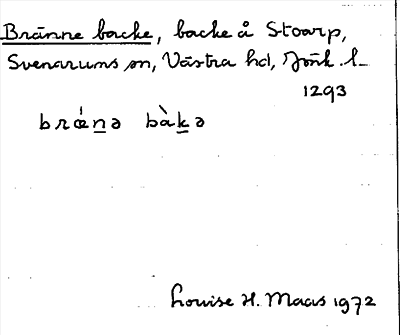 Bränne backe, backe å Stoarp,
Svenarums sn, Västra hd, Jönk. l.
1293
brǽn̲ə bàk̲ə
Louise H. Maas 1972